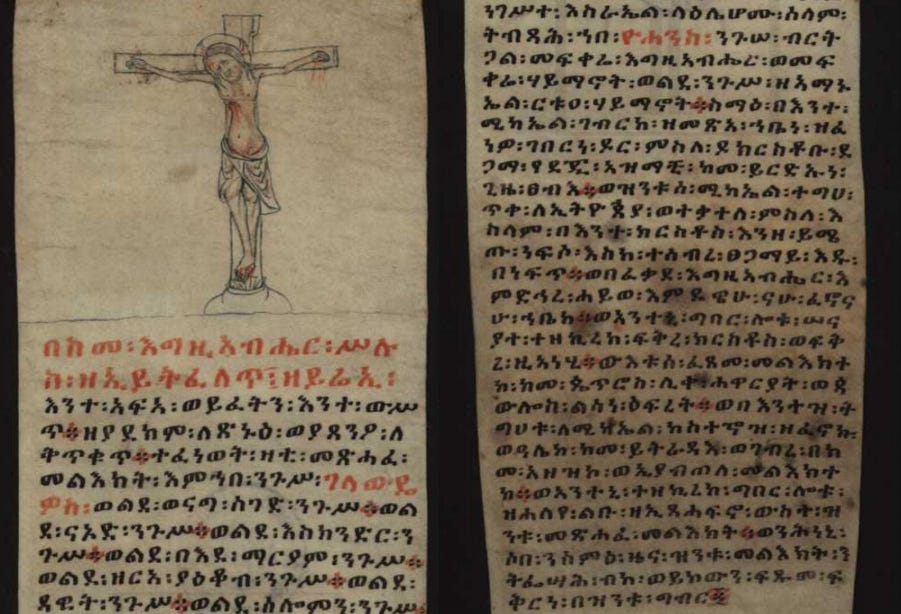 በከመ፡እግዚአብሔር፡ሥሉ
ስ፡ዘኢይትፌለጥ፤ዘይሬኢ፤
እንተ፡አፍአ፡ወይፈትን፡እንተ፡ውሥ
ጥ።ዘያደክም፡ለጽኑዕ፡ወያጸንዖ፡ለ
ቅጥቁጥ።ተፈነወት፡ዛቲ፡መጽሐፈ፡
መልእክት፡እምኀበ፡ንጉሥ፡ገላውዴ
ዎስ፡ወልደ፡ወናግ፡ሰገድ፡ንጉሥ።ወል
ደ፡ናኦድ፡ንጉሥ።ወልደ፡እስክንድር፡ን
ጉሥ።ወልደ፡በእደ፡ማርያም፡ንጉሥ።
ወልደ፡ዘርአ፡ያዕቆብ፡ንጉሥ።ወልደ፡
ዳዊት፡ንጉሥ።ወልደ፡ሰሎሞን፡ንጉሥ።
ነገሥተ፡እስራኤል፡ላዕሌሆሙ፡ሰላም፡
ትብጻሕ፡ኀበ፡ዮሐንስ፡ንጉሠ፡ብርት
ጋል፡መፍቀሬ፡እግዚአብሔር፡ወመፍ
ቀሬ፡ሃይማኖት፡ወልደ፡ንጉሥ፡ዘአማኑ
ኤል፡ርቱዐ፡ሃይማኖት።ስማዕ፡በእንተ፡
ሚካኤል፡ገብርከ፡ዘመጽአ፡ኀቤነ፡ዘፈ
ነዎ፡ገበርነ፡ዶር፡ምስለ፡ደክርስቶቡ፡ደ
ጋማ፡አዝማቺ፡ከመ፡ይርድኡነ፡
ጊዜ፡ፀብእ።ወዝንቱሰ፡ሚካኤል፡ተግህ፡
ጥቀ፡ለኢትዮጵያ፡ወተቃተለ፡ምስለ፡እ
ስላም፡በእንተ፡ክርስቶስ፡እንዘ፡ይሜ
ጡ፡ነፍሶ፡እስከ፡ተሰብረ፡ፀጋማይ፡እዴሁ፡
በነፍጥ።ወበፈቃደ፡እግዚአብሔር፡እ
ምድኅረ፡ሐይወ፡እምደዌሁ፡ናሁ፡ፈኖና
ሁ፡ኀቤከ።ወአንተኒ፡ግበር፡ሎቱ፡ሠና
ያተ፡ተዘኪረከ፡ፍቅረ፡ክርስቶስ፡ወፍቅ
ረ፡ዚአነሂ።ውእቱሰ፡ፈጸመ፡መልእክተ
ከ፡ከመ፡ጴጥሮስ፡ሊቀ፡ሐዋርያት፡ወጳ
ውሎስ፡ልሳነ፡ዕፍረት።ወበእንተዝ፡ት
ግህቱ፡ለሚካኤል፡
ወዓሌከ፡ከመ፡ይትራዳእ፡ወገብረ፡በከ
መ፡አዘዝከ፡ወኢያብጠለ፡መልእክተ
ከ።ወአንተኒ፡ተዘኪረከ፡ግበር፡ሎቱ፡
ዘሐለየ፡ልቡ፡ዘኢጸሐፍኖ፡ውስተ፡ዝ
ንቱ፡መጽሐፈ፡መልእክት።ወንሕነኒ፡
ሶበ፡ንሰምዕ፡ዜና፡ዝንቱ፡መልእክት፡ን
ትፌሣሕ፡ብከ፡ወይከውን፡ፍጹመ፡ፍ
ቅርነ፡በዝንቱ፡ግብር።